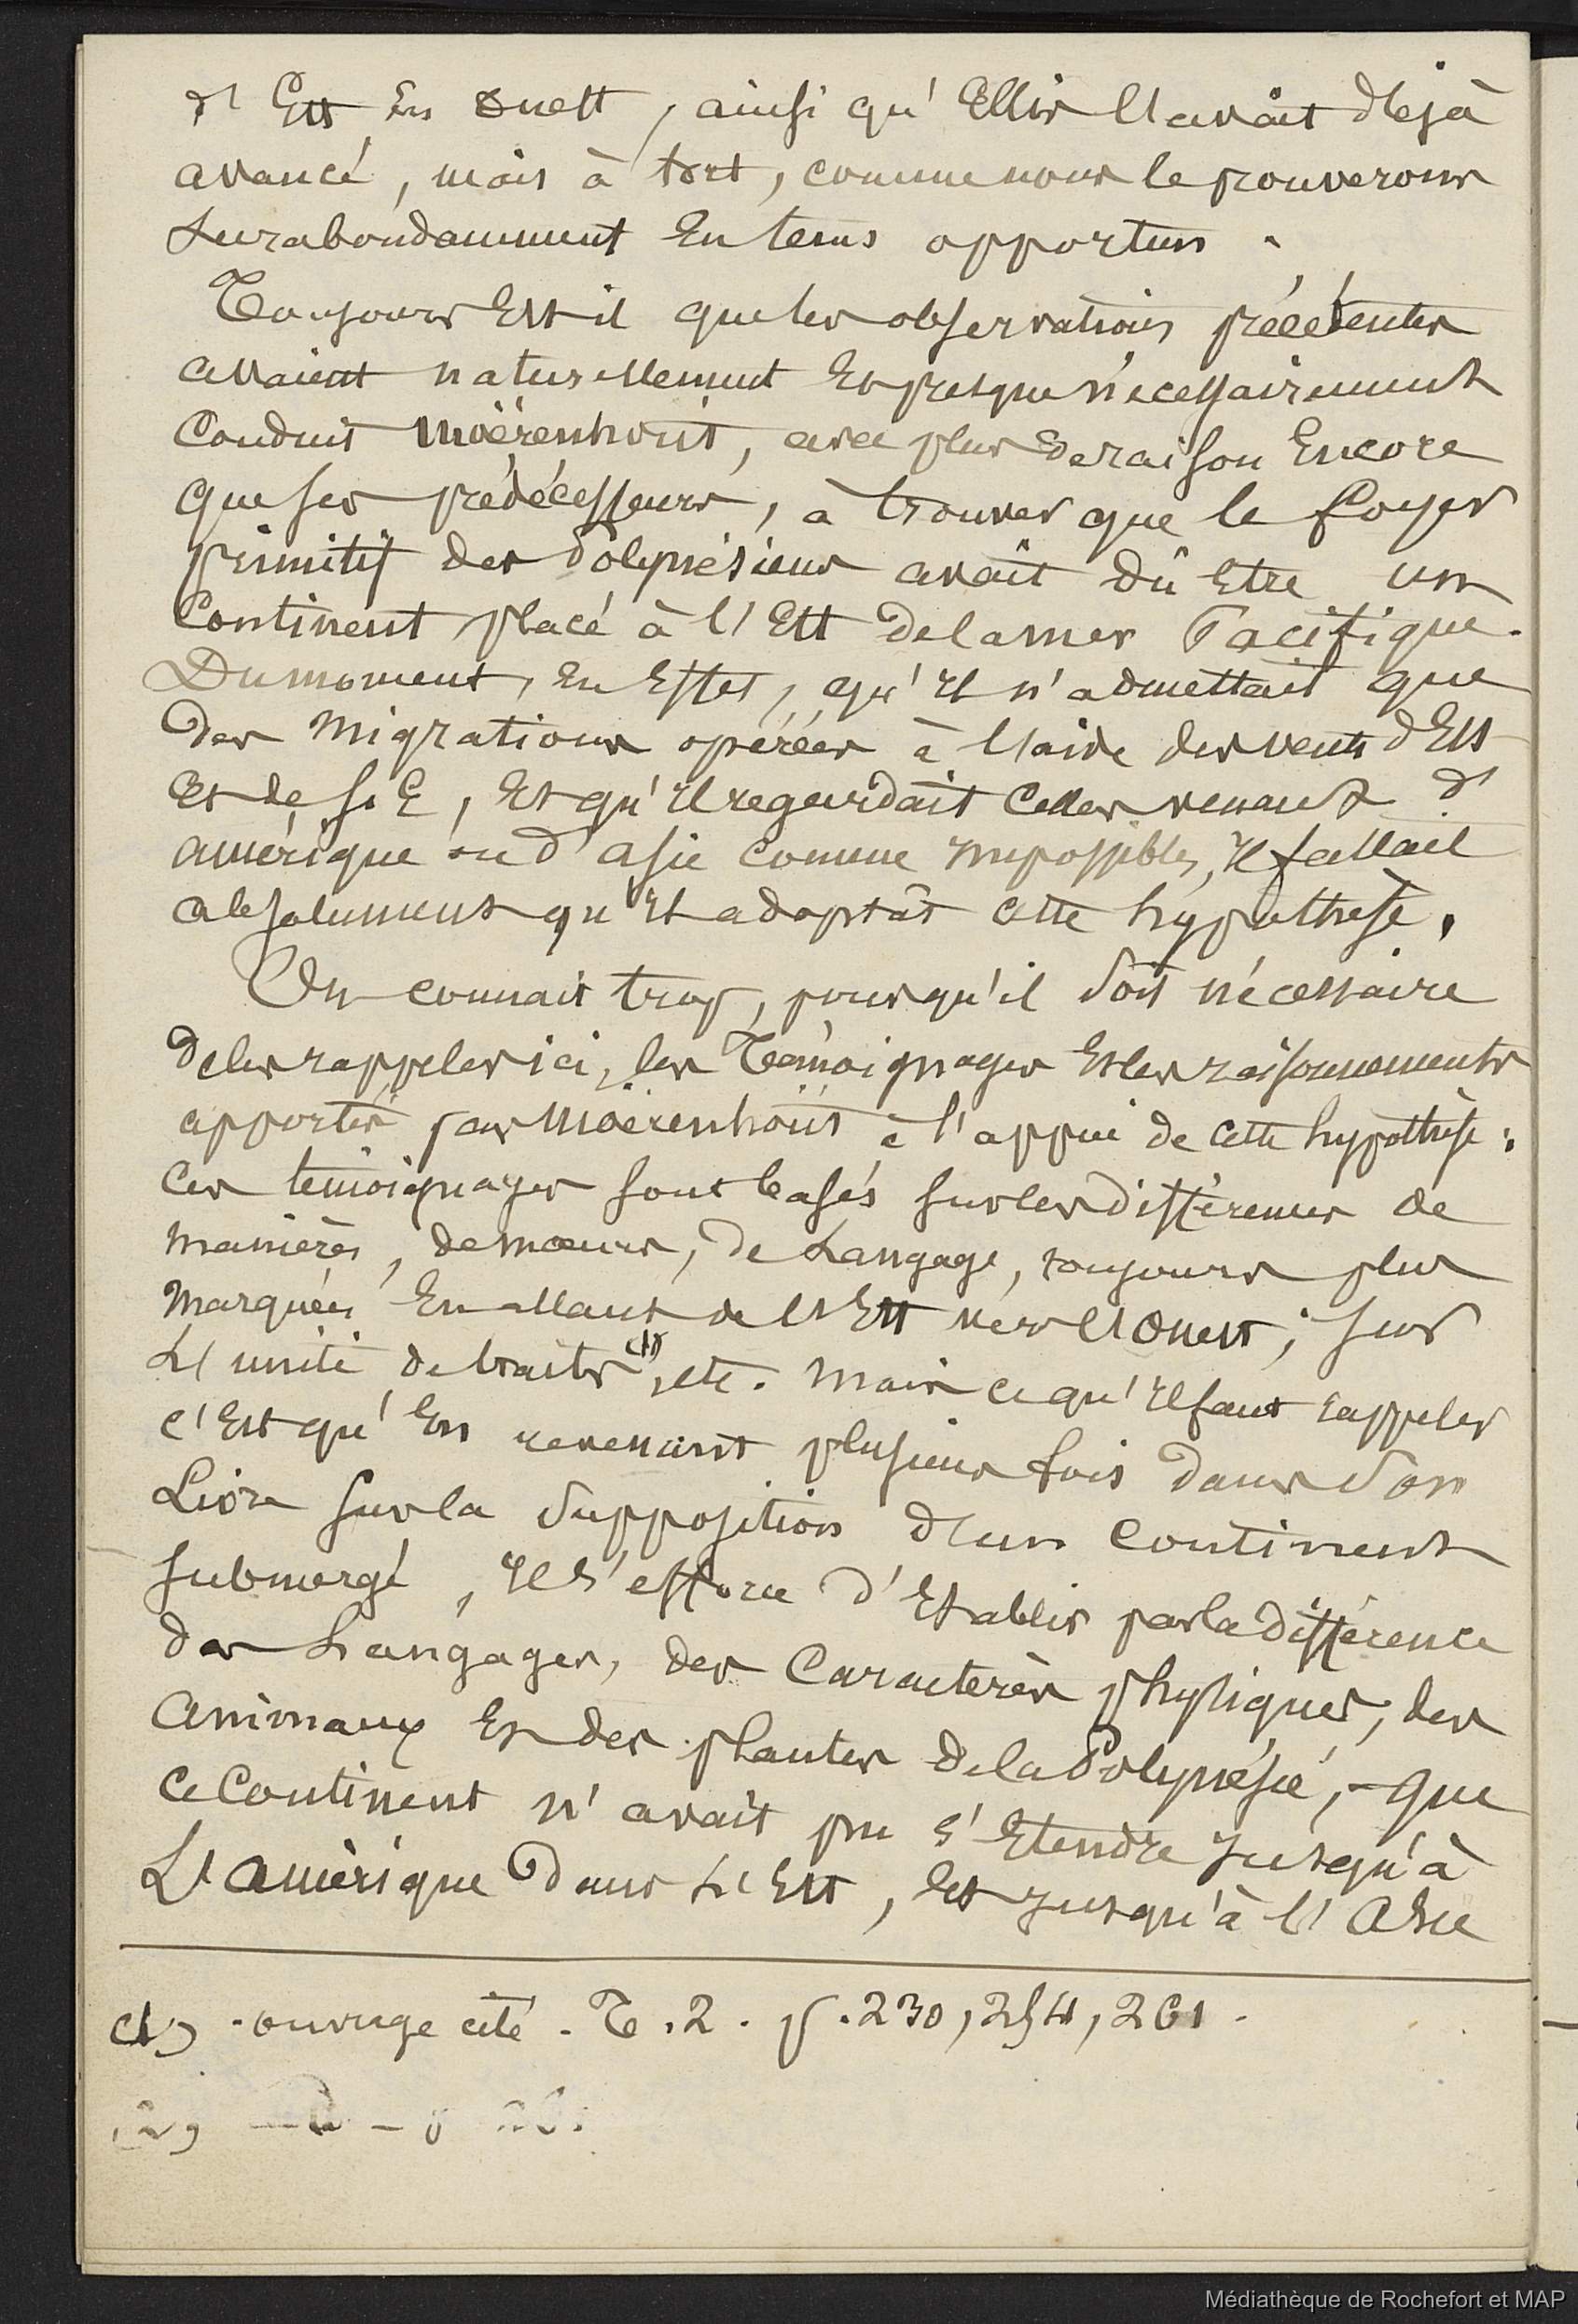 d'Est en ouest, ainsi qu'Ellis l'avait déjà
avancé, mais à tort, comme nous le prouverons
surabondamment en tems opportun.
Toujours est-il que les observations précédentes
avaient naturellement et presque nécessairement
conduit Moërenhoüt, avec plus de raison encore
que ses prédécesseurs, à trouver que le foyer
primitif des Polynésiens avait dû être un
continent placé à l'Est de la mer Pacifique.
Du moment, en effet, qu'il n'admettait que
des migrations opérées à l'aide des vents d'Est
et de S.E, et qu'il regardait celles venant d'
amérique ou d'asie comme impossibles, il fallait
absolument qu'il adoptât cette hypothèse.
On connait trop, pour qu'il soit nécessaire
de les rappeler ici, les témoignages et les raisonnements
apportés par Moërenhoüt à l'appui de cette hypothèse :
ces témoignages sont basés sur les différences de
manières, de mœurs, de langage, toujours plus
marquées en allant de l'Est vers l'Ouest ; sur
l'unité de traits (1), etc. Mais ce qu'il faut rappeler
c'est qu'en revenant plusieurs fois dans son
Livre sur la supposition d'un continent
submergé, il s'efforce d'établir par la différence
des Langages, des caractères physiques, des
animaux et des plantes de la Polynésie, - que
ce continent n'avait pu s'étendre jusqu'à
L'amérique dans l'Est, et jusqu'à l'Asie
(1) . ouvrage cité . T . 2 . p . 230, 254, 261 .
Médiathèque de Rochefort et MAP